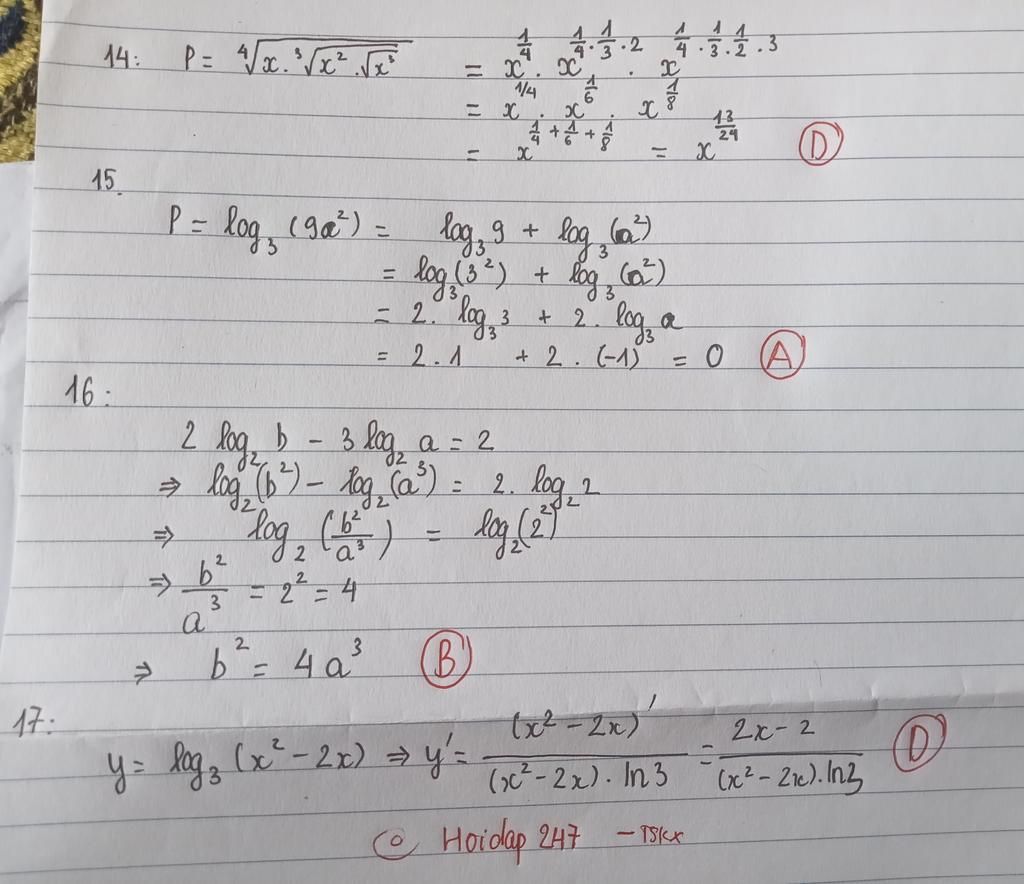 14: P = ⁴√(x · ³√(x² · √x³)) = x^(1/4) · x^(1/4 · 1/3 · 2) · x^(1/4 · 1/3 · 1/2 · 3)
= x^(1/4) · x^(1/6) · x^(1/8)
= x^(1/4 + 1/6 + 1/8) = x^(13/24) D
15.
P = log₃ (9a²) = log₃ 9 + log₃ (a²)
= log₃(3²) + log₃ (a²)
= 2. log₃ 3 + 2. log₃ a
= 2 . 1 + 2 . (-1) = 0 A
16:
2 log₂ b - 3 log₂ a = 2
⇒ log₂(b²) - log₂(a³) = 2. log₂ 2
⇒ log₂ (b²/a³) = log₂(2²)
⇒ b²/a³ = 2² = 4
⇒ b² = 4a³ B
17:
y = log₃ (x² - 2x) ⇒ y' = (x² - 2x)'/((x² - 2x) . ln 3) = (2x - 2)/((x² - 2x). ln3) D
© Hoidap 247 - TSkx